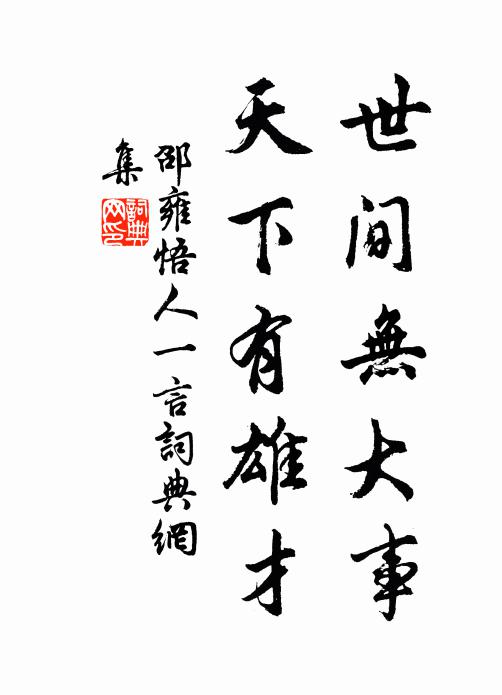 世間無大事
天下有雄才
邵雍悟人一言詞典網
集
詞典网印